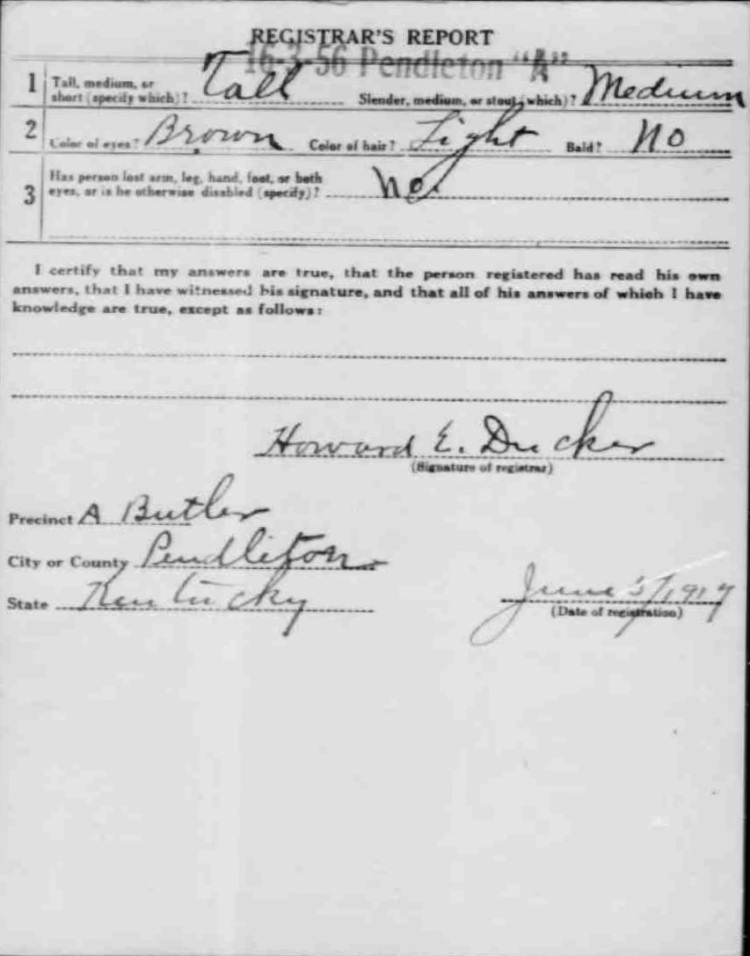 REGISTRAR'S REPORT
16-3-56 Pendleton "A"
1 Tall, medium, or short (specify which)? Tall Slender, medium, or stout (which)? Medium
2 Color of eyes? Brown Color of hair? Light Bald? No
3 Has person lost arm, leg, hand, foot, or both eyes, or is he otherwise disabled (specify)? No
I certify that my answers are true, that the person registered has read his own
answers, that I have witnessed his signature, and that all of his answers of which I have
knowledge are true, except as follows:
Howard E. Ducker
(Signature of registrar)
Precinct A Butler
City or County Pendleton
State Kentucky
June 5/1917
(Date of registration)